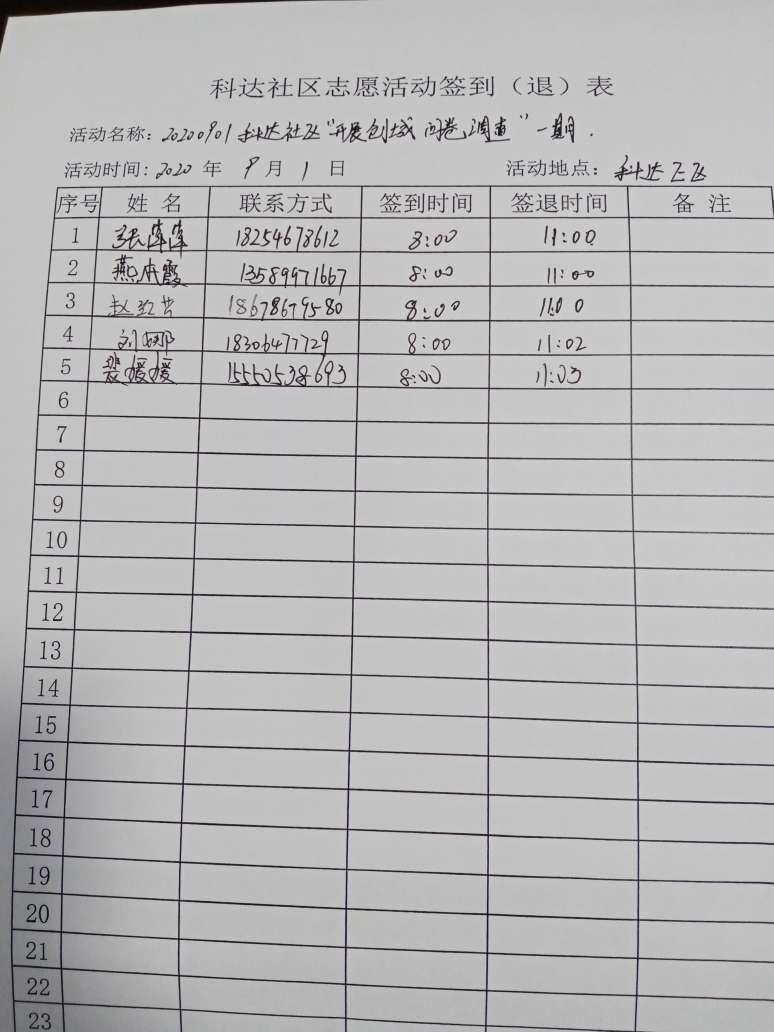 科达社区志愿活动签到（退）表
活动名称：20200901科达社区“开展创城问卷调查”一期.
活动时间：2020 年 9 月 1 日 活动地点：科达社区
序号 姓名 联系方式 签到时间 签退时间 备注
1 张萍萍 18254678612 8:00 11:00
2 燕霞 13589971667 8:00 11:00
3 赵 18678679580 8:00 11:00
4 刘娜 18306477729 8:00 11:02
5 裴媛媛 15550538693 8:00 11:03
6
7
8
9
10
11
12
13
14
15
16
17
18
19
20
21
22
23